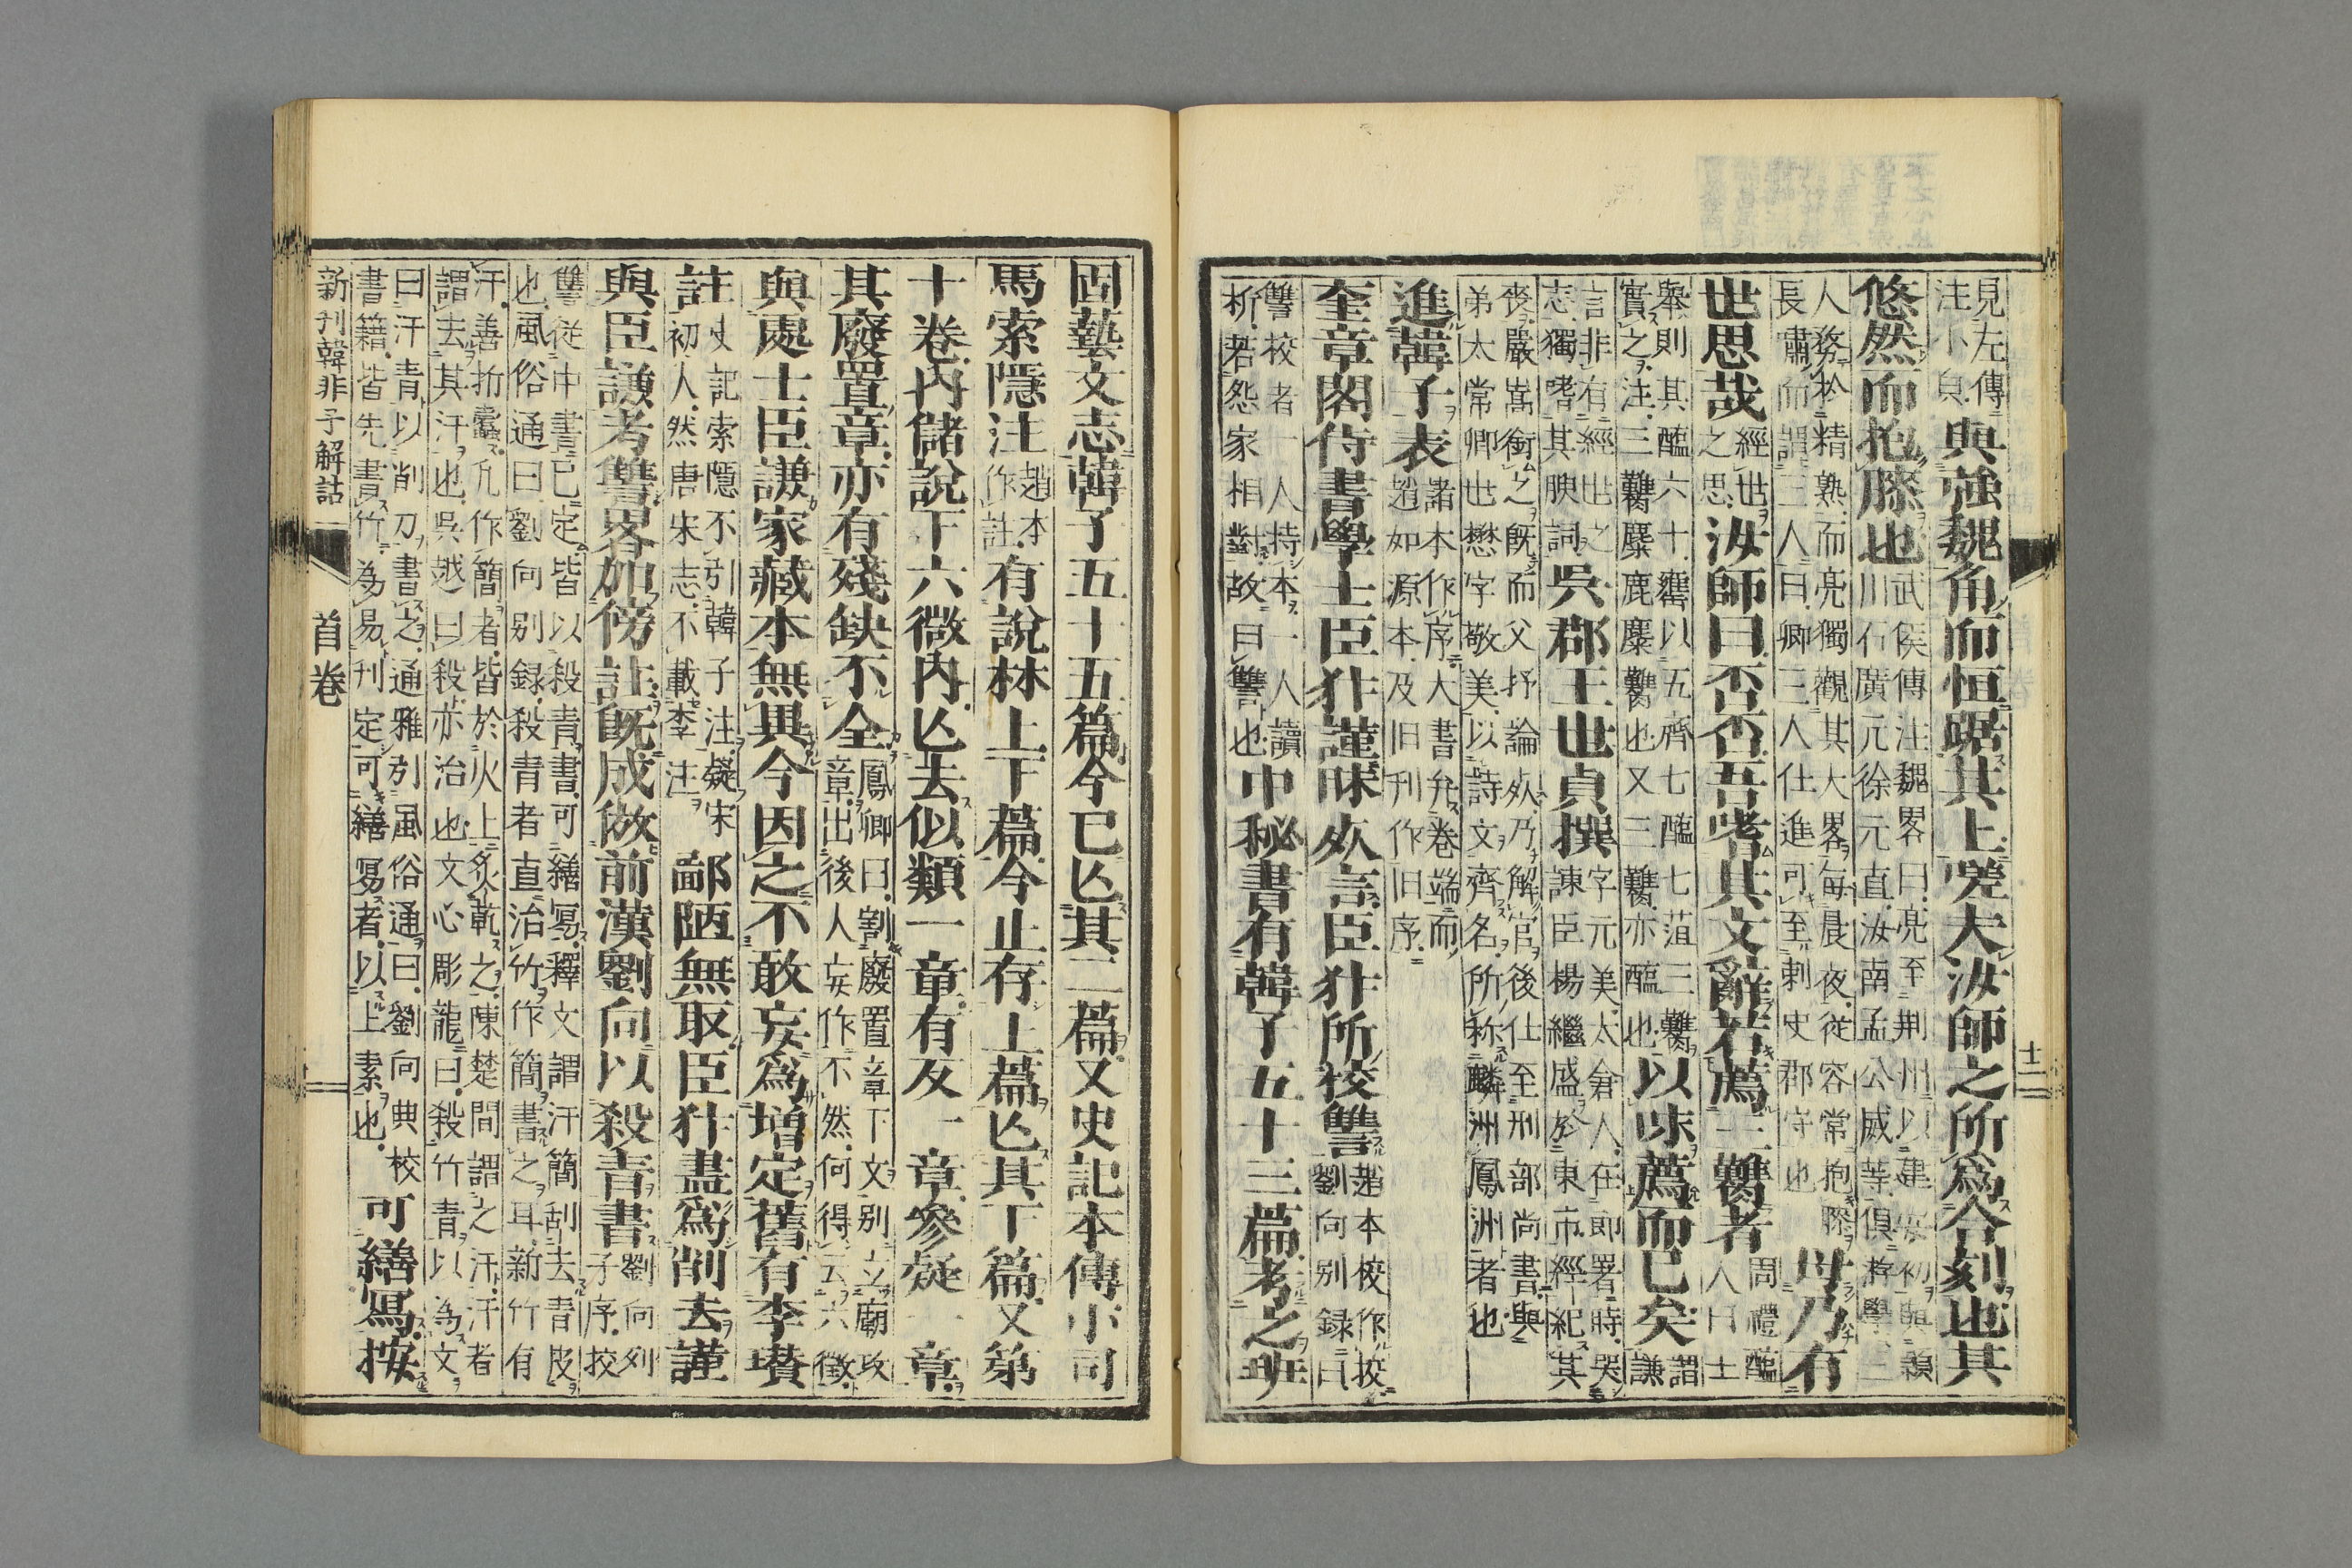 見左傳
注小負
與強魏角而恒踞其上嗟夫汝師之所爲合刻也其
悠然而抱膝也
武侯傳注魏畧曰亮至荆州以建安初與潁
川石廣元徐元直汝南孟公威等俱游學三
人務於精熟而亮獨觀其大畧每晨夜從容常抱膝
長嘯而謂三人曰卿三人仕進可至刺史郡守也
毋乃有
世思哉
經世
之思
汝師曰否否吾嗜其文辭若薦三臡者
周禮醢
人曰士
舉則其醢六十罋以五齊七醢七菹三臡
實之注三臡麋鹿麋臡也又三臡亦醢也
以味薦而已矣
謂
謙
言非有經世之
志獨嗜其腴詞
吳郡王世貞撰
字元美太倉人在郎署時哭
諫臣楊繼盛於東市經紀其
喪嚴嵩銜之既而父抒論死乃解官後仕至刑部尚書與
弟太常卿世懋字敬美以詩文齊名所称麟洲鳳洲者也
進韓子表
諸本作序大書弁卷端而
趙如源本及旧刊作旧序
奎章閣侍書學士臣犿謹昧死言臣犿所校讐
趙本校作挍
劉向别録曰
讐校者一人持本一人讀
析若怨家相對故曰讐也
中秘書有韓子五十三篇考之班
固藝文志韓子五十五篇今已亾其二篇又史記本傳小司
馬索隱注
趙本
作註
有說林上下篇今止存上篇亾其下篇又第
十卷内儲說下六微内亾去似類一章有反一章參疑一章
其廢置章亦有殘缺不全
鳳卿曰割廢置章下文别立廟攻
章出後人妄作不然何得云六徵
與處士臣謙家藏本無異今因之不敢妄爲增定舊有李瓚
註
史記索隱不引韓子注疑宋
初人然唐宋志不載李注
鄙陋無取臣犿盡爲削去謹
與臣謙考讐畧加傍註既成倣前漢劉向以殺青書
劉向列
子序挍
讐從中書已定皆以殺青書可繕冩釋文謂汗簡刮去青皮
也風俗通曰劉向别録殺青者直治竹作簡書之耳新竹有
汗善折蠹凢作簡者皆於火上炙乾之陳楚間謂之汗汗者
謂去其汗也吳越曰殺亦治也文心彫龍曰殺竹青以為文
曰汗青以削刀書之通雅列風俗通曰劉向典校
書籍皆先書竹為易刊定可繕冩者以上素也
可繕冩按
新刊韓非子解詁
首卷
十二